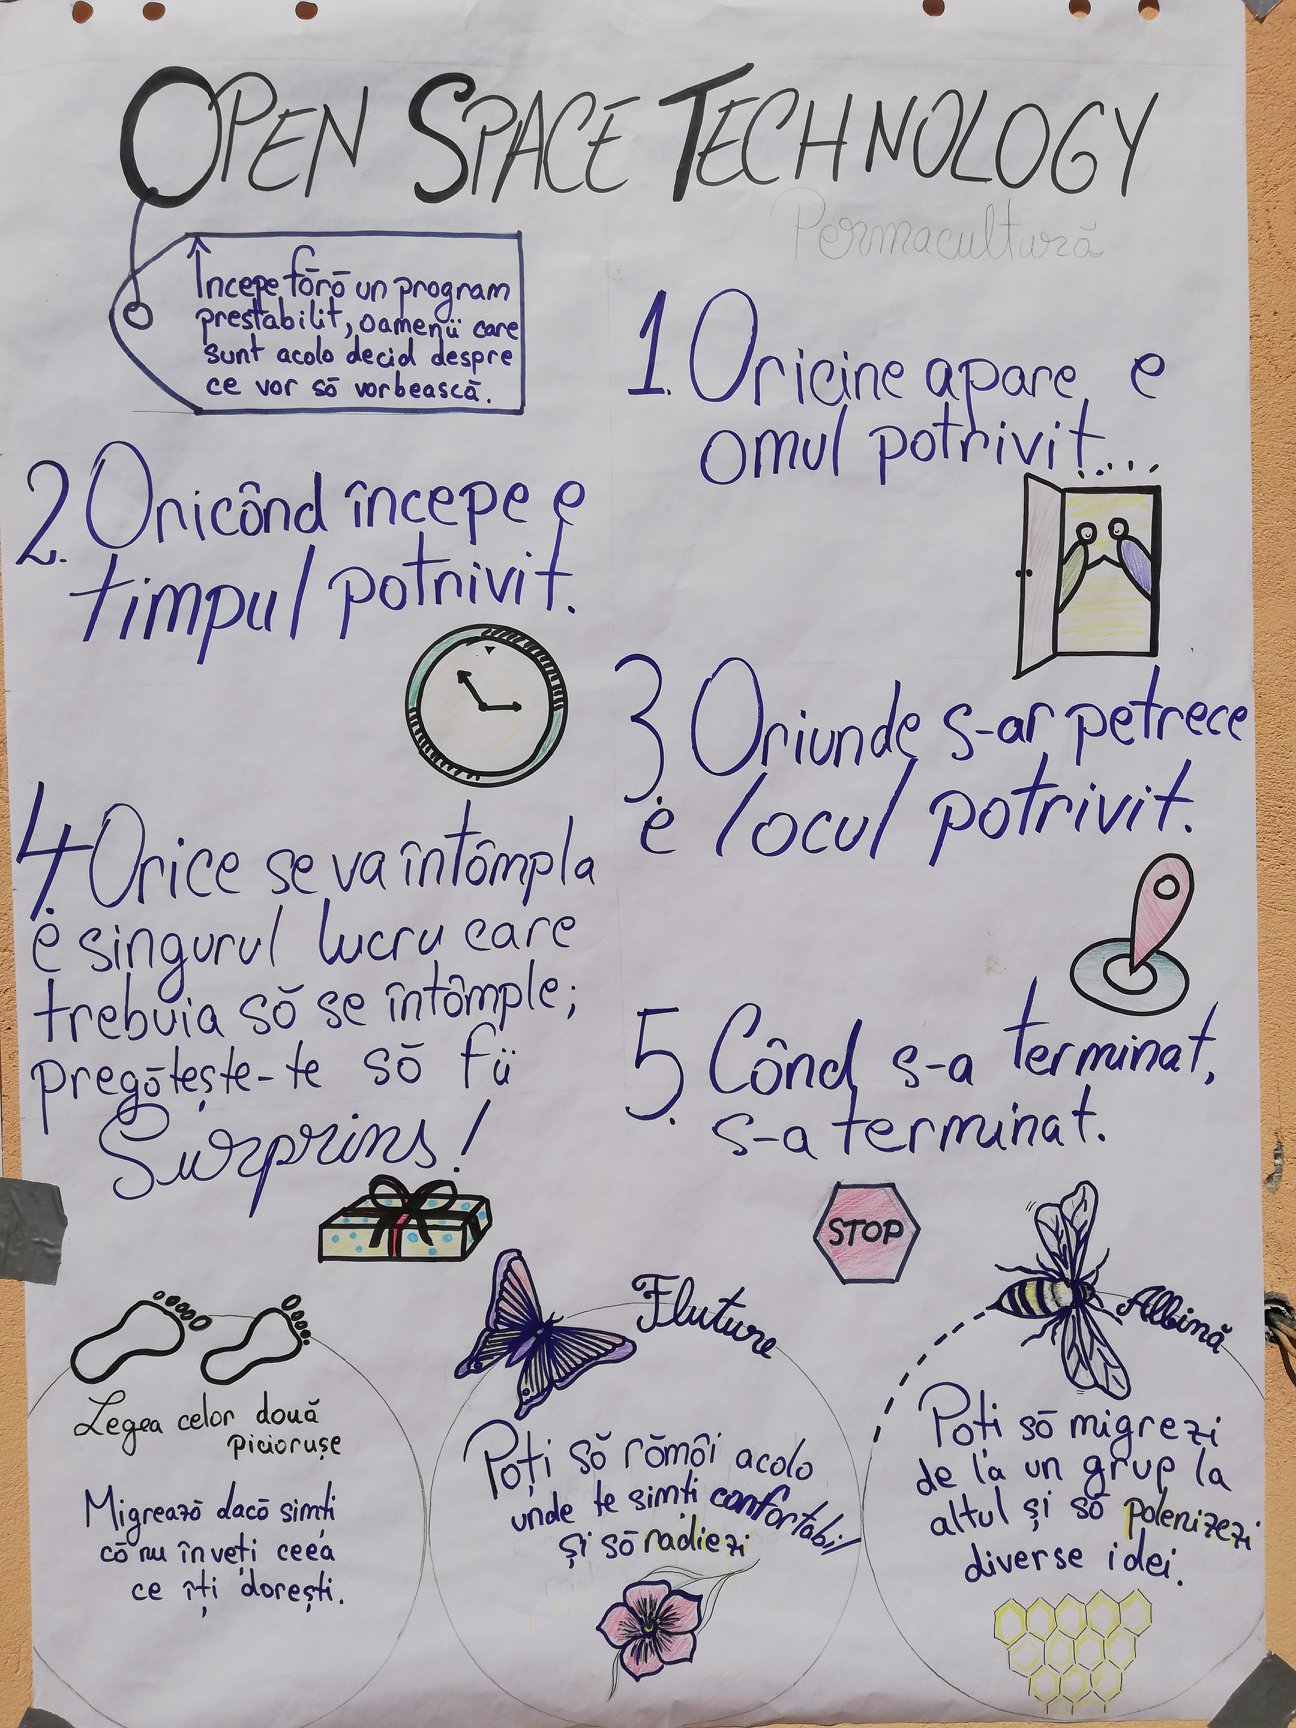 OPEN SPACE TECHNOLOGY
Permacultură
Începe fără un program
prestabilit, oamenii care
sunt acolo decid despre
ce vor să vorbească.
1. Oricine apare, e
omul potrivit...
2. Oricând începe e
timpul potrivit.
3. Oriunde s-ar petrece
e locul potrivit.
4. Orice se va întâmpla
e singurul lucru care
trebuia să se întâmple;
pregătește-te să fii
Surprins!
5. Când s-a terminat,
s-a terminat.
STOP
Legea celor două
piciorușe
Migrează dacă simți
că nu înveți ceea
ce îți dorești.
Fluture
Poți să rămâi acolo
unde te simți confortabil
și să radiezi
Albină
Poți să migrezi
de la un grup la
altul și să polenizezi
diverse idei.